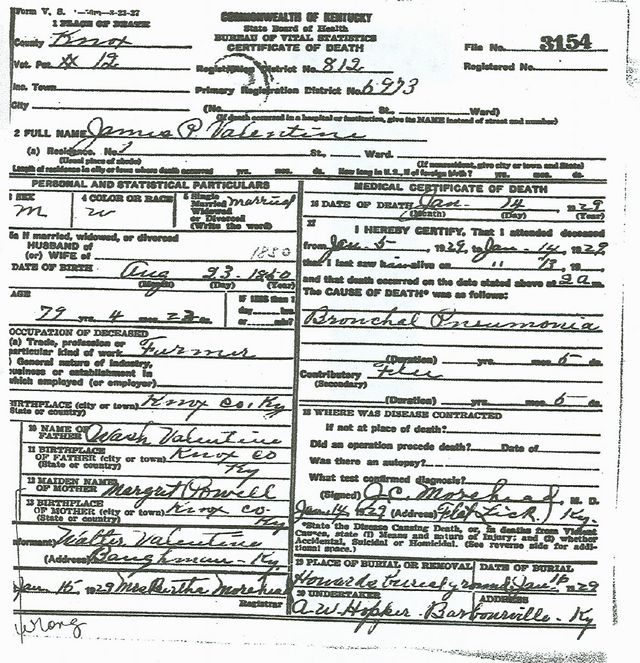 Form V. S. 8-23-27
COMMONWEALTH OF KENTUCKY
State Board of Health
BUREAU OF VITAL STATISTICS
CERTIFICATE OF DEATH
1 PLACE OF DEATH
County Knox
File No. 3154
Vot. Pct. # 12
Registration District No. 812
Registered No.
Inc. Town
Primary Registration District No. 6973
City
(No. St., Ward)
(If death occurred in a hospital or institution, give its NAME instead of street and number)
2 FULL NAME James P Valentine
(a) Residence. No. 1 St., Ward.
(Usual place of abode) (If nonresident, give city or town and State)
Length of residence in city or town where death occurred yrs. mos. ds. How long in U. S., if of foreign birth? yrs. mos. ds.
PERSONAL AND STATISTICAL PARTICULARS
SEX
M
4 COLOR OR RACE
W
5 Single
Married
Widowed
or Divorced
(Write the word)
married
5a If married, widowed, or divorced
HUSBAND of
(or) WIFE of
1850
DATE OF BIRTH Aug 23 1850
(Month) (Day) (Year)
AGE
79 4 22 ds.
IF LESS than 1
day hrs.
or min?
OCCUPATION OF DECEASED
(a) Trade, profession or
particular kind of work Farmer
) General nature of industry,
business or establishment in
which employed (or employer)
BIRTHPLACE (city or town) Knox Co. Ky
State or country)
10 NAME OF
FATHER Wash Valentine
11 BIRTHPLACE
OF FATHER (city or town) Knox Co
(State or country) Ky
12 MAIDEN NAME
OF MOTHER Margret Powell
13 BIRTHPLACE
OF MOTHER (city or town) Knox Co.
(State or country) Ky
(Informant) Walter Valentine
(Address) Baughman - Ky
Jan 15 1929 Mrs Bertha Morehead
Registrar
wrong
MEDICAL CERTIFICATE OF DEATH
16 DATE OF DEATH Jan - 14 1929
(Month) (Day) (Year)
17
I HEREBY CERTIFY, That I attended deceased
from Jan - 5, 1929, to Jan - 14, 1929
that I last saw him alive on " 13, 19
and that death occurred on the date stated above at 2 a m.
The CAUSE OF DEATH* was as follows:
Bronchal Pneumonia
(Duration) yrs. mos. 5 ds.
Contributory Flu
(Secondary)
(Duration) yrs. mos. 5 ds.
18 WHERE WAS DISEASE CONTRACTED
if not at place of death?
Did an operation precede death? Date of
Was there an autopsy?
What test confirmed diagnosis?
(Signed) J. C. Morehead, M. D.
Jan 14, 1929 (Address) Flat Lick, Ky.
*State the Disease Causing Death, or, in deaths from Violent
Causes, state (1) Means and nature of Injury; and (2) whether
Accidental, Suicidal or Homicidal. (See reverse side for addi-
tional space.)
19 PLACE OF BURIAL OR REMOVAL DATE OF BURIAL
Howards burial ground Jan 1929
20 UNDERTAKER ADDRESS
A. W. Hopper - Barbourville - Ky